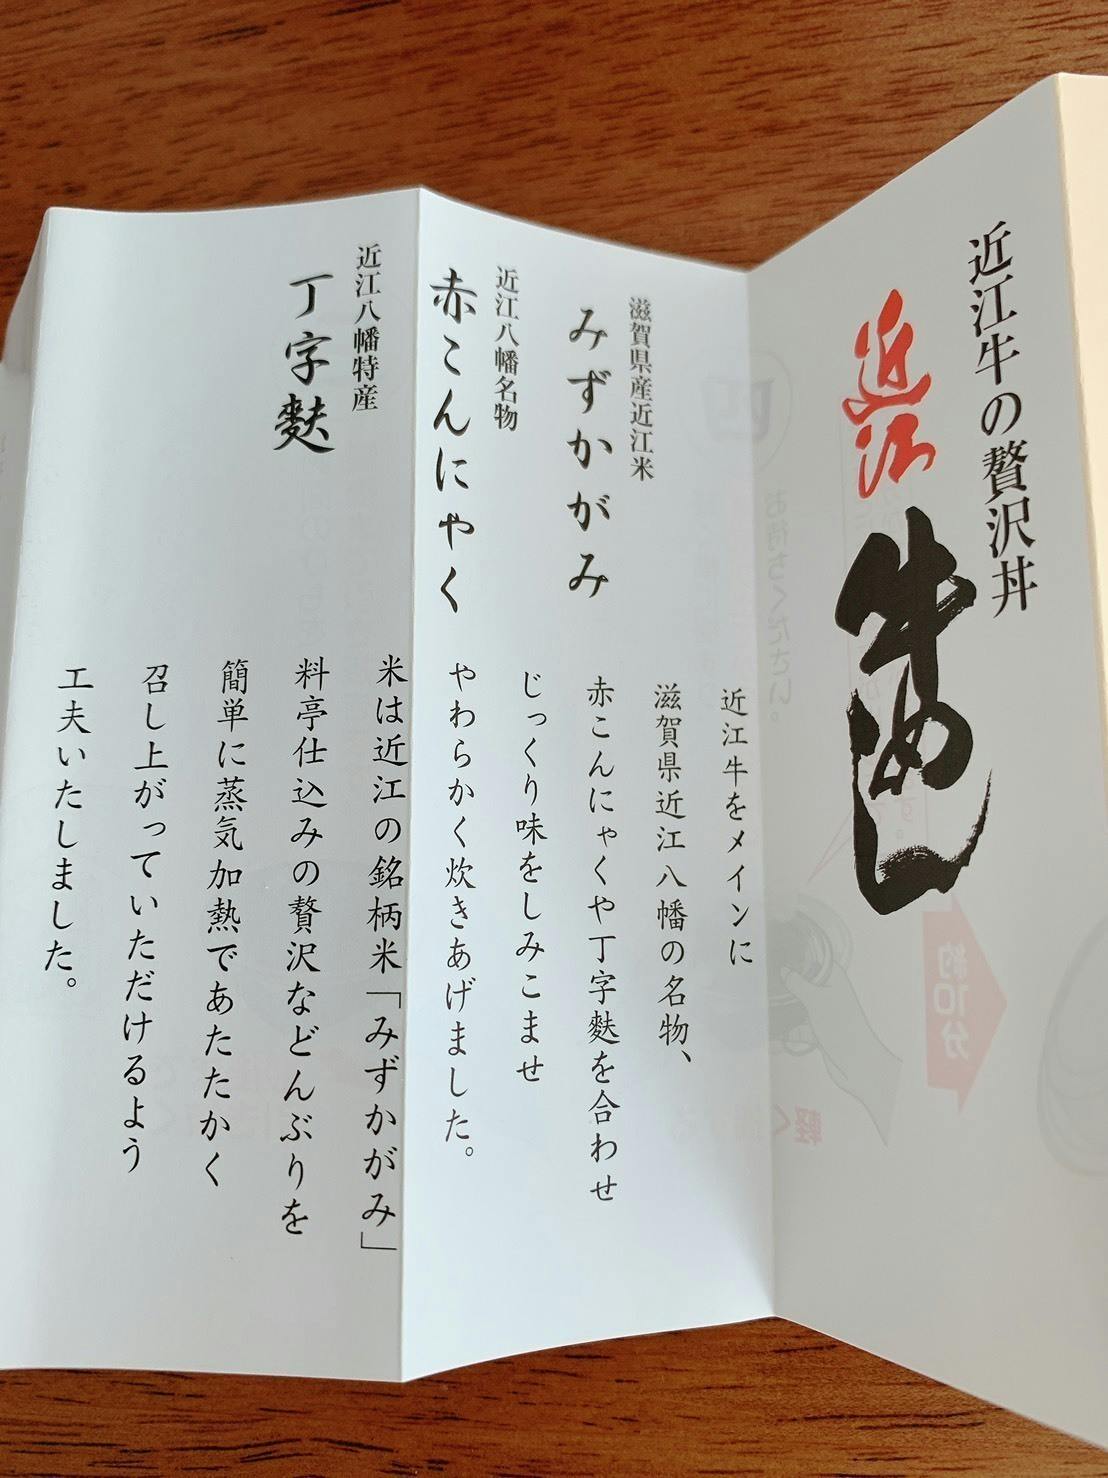 近江牛の贅沢丼
近江
牛めし
滋賀県産近江米
みずかがみ
近江八幡名物
赤こんにゃく
近江八幡特産
丁字麩
近江牛をメインに
滋賀県近江八幡の名物、
赤こんにゃくや丁字麩を合わせ
じっくり味をしみこませ
やわらかく炊きあげました。
米は近江の銘柄米「みずかがみ」
料亭仕込みの贅沢などんぶりを
簡単に蒸気加熱であたたかく
召し上がっていただけるよう
工夫いたしました。
お待ちください。
約10分